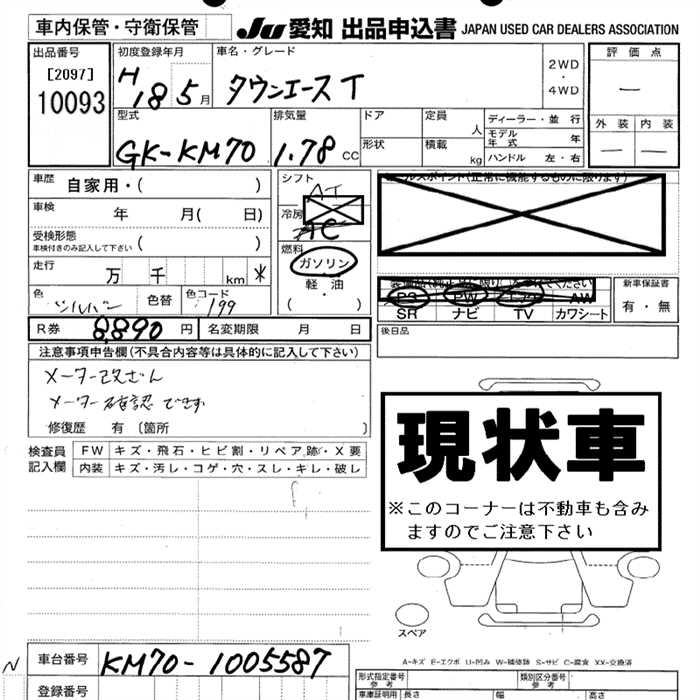 車内保管・守衛保管 JU 愛知 出品申込書 JAPAN USED CAR DEALERS ASSOCIATION
出品番号 初度登録年月 車名・グレード 評価点
[2097] H 18 5月 タウンエース T 2WD ・ 4WD —
10093 型式 排気量 ドア 定員 人 ディーラー・並行 外装 内装
GK-KM70 1.78 CC 形状 積載 kg モデル年式 年 — —
ハンドル 左・右
車歴 自家用・( ) シフト AT
車検 年 月( 日) 冷房 AC
受検形態 車検付きのみ記入して下さい ( ) 燃料
走行 万 千 km * ガソリン・軽油 ( ・ )
色 シルバー 色替 色コード 199
PS PW エアB AW 新車保証書
SR ナビ TV カワシート 有・無
R券 8,890 円 名変期限 月 日 後日品
注意事項申告欄(不具合内容等は具体的に記入して下さい)
メーター改ざん
メーター確認できず
修復歴 有 〔箇所 〕
現状車
※このコーナーは不動車も含み
ますのでご注意下さい
検査員記入欄 FW キズ・飛石・ヒビ割・リペア跡・X要
内装 キズ・汚レ・コゲ・穴・スレ・キレ・破レ
スペア
A-キズ E-エクボ U-凹み W-補修跡 S-サビ C-腐食 XX-交換済
N 車台番号 KM70-1005587 形式指定番号 参考 類別区分番号 参考
登録番号 車庫証明用 長さ 幅 高さ